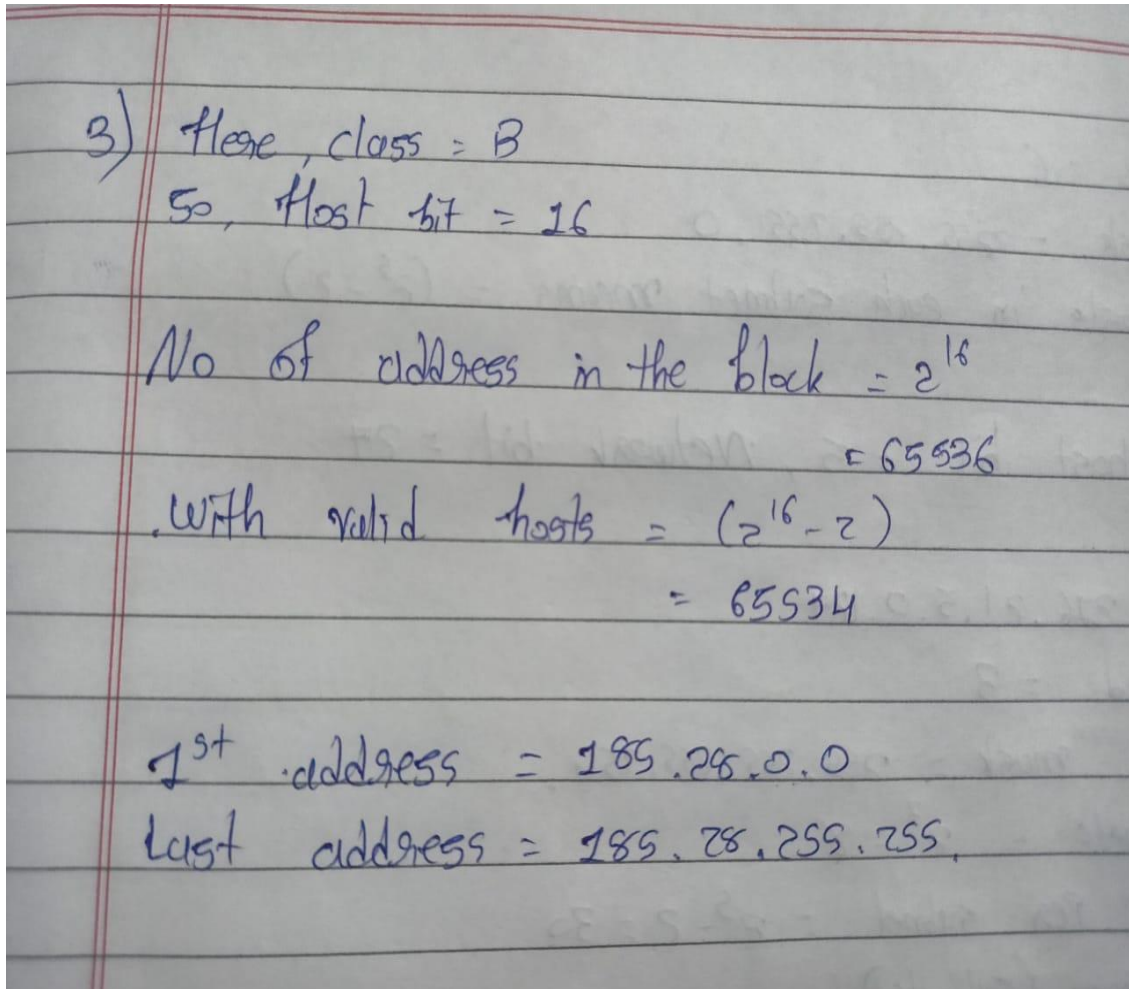 3) Here, class = B
So, Host bit = 16
No of address in the block = 2^16
= 65536
With valid hosts = (2^16 - 2)
= 65534
1st address = 185.28.0.0
Last address = 185.28.255.255.